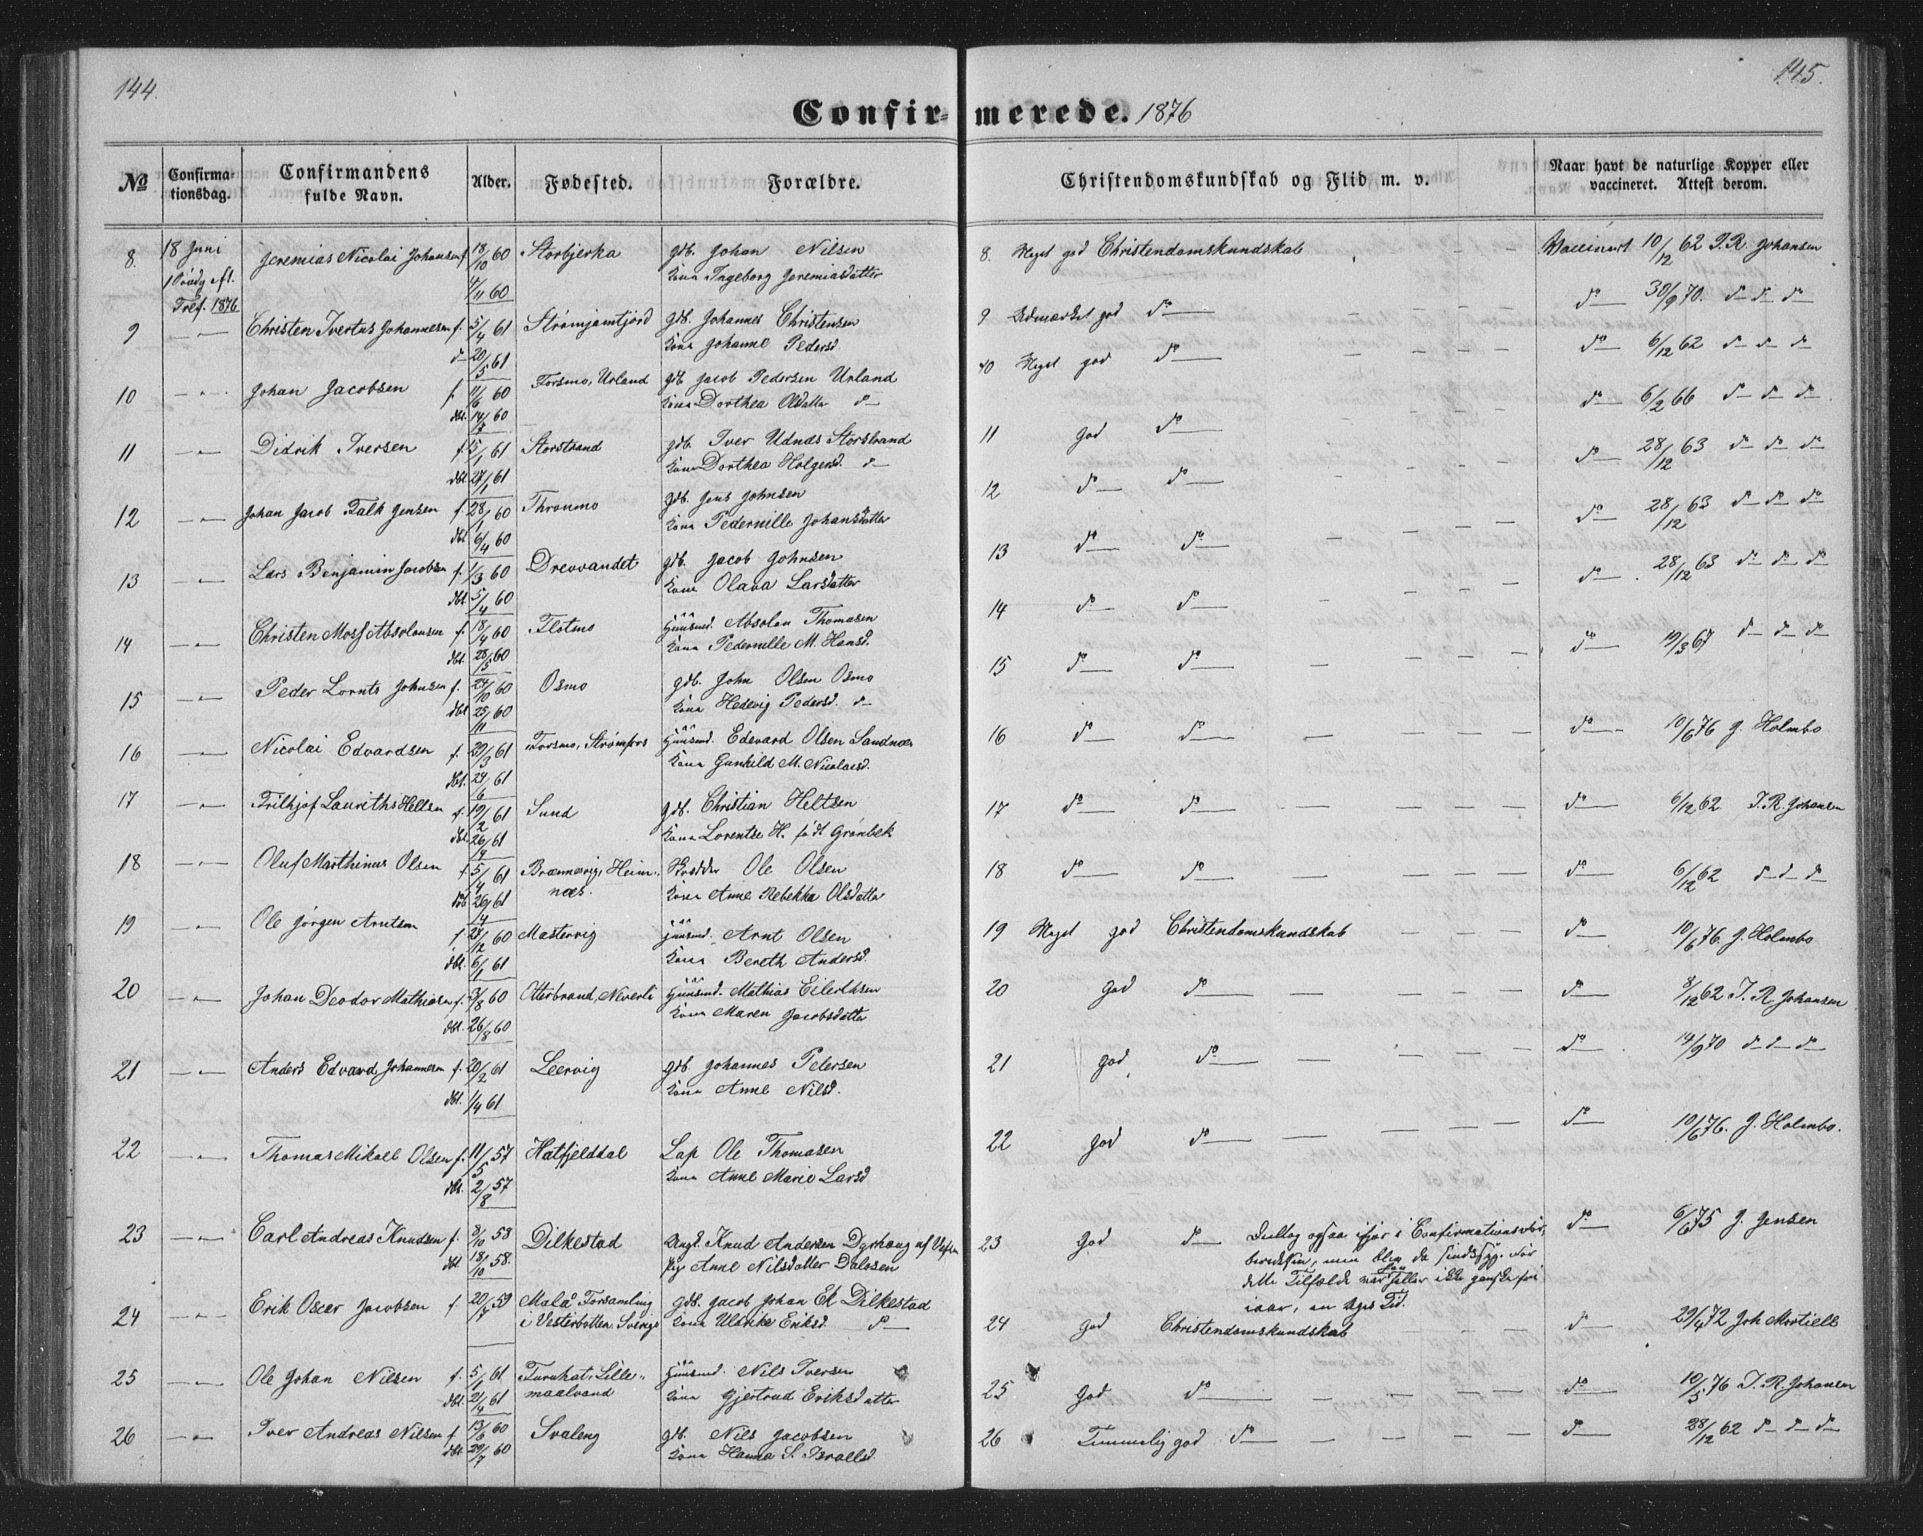 144.
145.
Confirmerede. 1876
№
Confirmationsdag.
Confirmandens fulde Navn.
Alder.
Fødested.
Forældre.
Christendomskundskab og Flid m. v.
Naar havt de naturlige Kopper eller vaccineret. Attest derom.
8. 18 Juni Jeremias Nicolai Johansen f. 18/10 60 Storbjerka gdb. Johan Nilsen
1 Søndg eft. Tref. 1876 4/11 60 Kone Ingeborg Jeremiasdatter
8. Meget god Christendomskundskab — — Vaccineret 10/12 62 J. R. Johansen
9 —〃— Christen Ivertus Johannesen f. 5/4 61 Strømjamtjord gdb. Johannes Christensen
d 20/5 61 Kone Johanne Pedersd.
9 Udmærket god do — — do 30/9 70. do do do
10 —〃— Johan Jacobsen f. 11/6 60 Forsmo, Urland gdb Jacob Pedersen Urland
dbt. 14/8 60 Kone Dorthea Olsdatter do
10 Meget god do — — do 6/12 62 do do do
11 —〃— Didrik Iversen f. 5/1 61 Storstrand gdb. Iver Udnæs Storstrand
dbt 27/1 61 Kone Dorthea Holgersd. do
11 god do — — do 6/2 66 do do do
12 —〃— Johan Jacob Falk Jensen f. 28/1 60 Thronmo gdb. Jens Johnsen
dbt 6/4 60 Kone Pedernille Johansdatter
12 do do — — do 28/12 63 do do do
13 —〃— Lars Benjamin Jacobsen f. 1/3 60 Drevvandet gdb. Jacob Johnsen
dbt 5/4 60 Kone Olava Larsdatter
13 do do — — do 28/12 63 do do do
14 —〃— Christen Moss Absolonsen f. 18/4 60 Flotmo Huusmd. Absolon Thomasen
dbt. 28/5 60 Kone Pedernille M. Hansd.
14 do do — — do 28/12 63 do do do
15 —〃— Peder Lornts Johnsen f. 24/10 60 Osmo gdb. John Olsen Osmo
dbt 25/11 60 Kone Hedevig Pedersd. do
15 do do — — do 19/3 67 do do do
16 —〃— Nicolai Edvardsen f. 29/3 61 Forsmo, Strømfors Huusmd. Edevard Olsen Sandnæs
dbt. 24/6 61 Kone Gunhild M. Nicolaisd.
16 do do — — do 10/6 76 J. Holmbo
17 —〃— Frithjof Laurits Heltsen f. 19/2 61 Sund gdb. Christian Heltsen
dbt. 26/4 61 Kone Lorentse H. født Grønbek
17 do do — — do 6/12 62 J. R. Johansen
18 —〃— Oluf Marthinus Olsen f. 5/4 61 Brænnvig, Hemnæs. Skrædder Ole Olsen
dbt 26/4 61 Kone Anne Rebekka Olsdatter
18 do do — — do 6/12 62 do do do
19 —〃— Ole Jørgen Arntsen f 28/12 60 Mastervig Huusmd. Arnt Olsen
dbt. 6/1 61 Kone Bereth Andersd.
19 Meget god Christendomskundskab — — do 10/6 76. J. Holmbo
20 —〃— Johan Deodor Mathiasen f. 3/8 60 Otterbrand, Neverli Huusmd. Mathias Eilertsen
dbt. 26/8 60 Kone Maren Jacobsdatter
20 God do — — do 8/12 62 J. R. Johansen
21 —〃— Anders Edvard Johannesen f. 20/2 61 Leervig gdb. Johannes Petersen
dbt. 1/4 61 Kone Anne Nilsd.
21 god do — — do 14/9 70 do do do
22 —〃— Thomas Mikael Olsen f. 11/5 57 Hatfjelddal Lap Ole Thomasen
dbt. 2/8 57 Kone Anne Marie Larsd
22 god do — — do 10/6 76. J. Holmbo.
23 —〃— Carl Andreas Knudsen f. 8/10 58 Dilkestad Ungk. Knud Andersen Dyrhaug af Vefsn
dbt 18/10 58. Pig Anne Nilsdatter Dalosen
23 God do Deltog ogsaa ifjor i Confirmationsfor-
beredelsen, men blev da sindssyg. For
dette Tilfælde var han heller ikke ganske fri
iaar, en Uges Tid.
do 6/6 75 J. Jensen
24 —〃— Erik Oscar Jacobsen f 20/7 59 Malå Forsamling gdb. Jacob Johan Ek Dilkestad
i Vesterbotten, Sverige Kone Ulrike Eriksd. do
24 god Christendomskundskab — — do 29/4 72 Joh Mortell
25 —〃— Ole Johan Nilsen f. 5/1 61 Furuhat, Lille-maalvand Huusmd. Nils Iversen
dbt. 21/4 61 Kone Gjertrud Eriksdatter
25 God do — — do 10/5 76 J. R. Johansen
26 —〃— Iver Andreas Nilsen f 13/6 60 Svaleng gdb. Nils Jacobsen
dbt 29/7 60 Kone Hanna S. Israelsd
26 Temmelig god do — — do 28/12 62 do do do